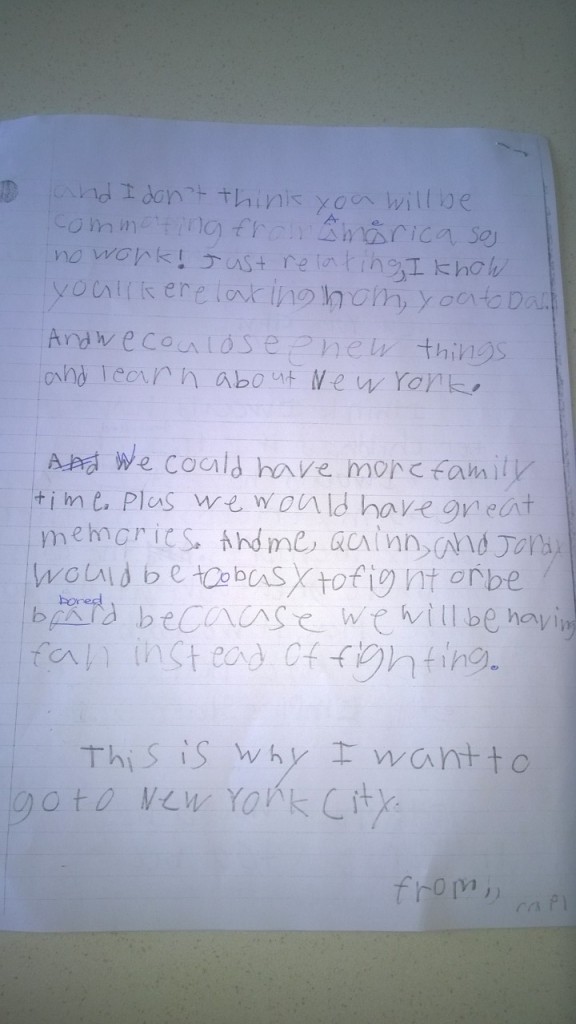 and I don't think you will be
commeting from America so,
no work! Just relaxing, I know
you like relaxing mom, you to Dad.
And we could see new things
and learn about New York.
And We could have more family
time. Plus we would have great
memories. And me, Quinn, and Jordy
would be to busy to fight or be
bored because we will be having
fun instead of fighting.
This is why I want to
go to New York City.
from,,